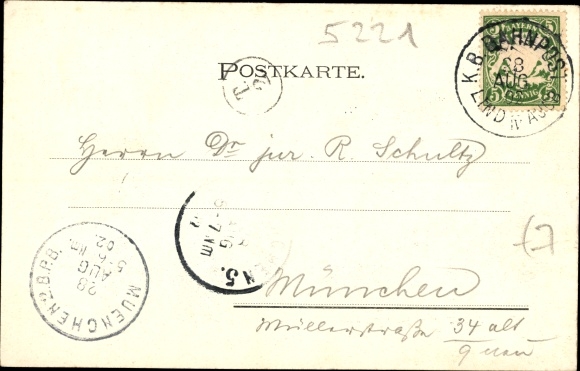 5221
BAYERN
5 PFENNIG 5
K.B. BAHNPOST
28
AUG
LIND
POSTKARTE.
T.
Herrn Dr jur. R. Schultz
5-7 NM
5.
MUENCHEN 2.B.P.B.
28
AUG
02
München
Müllerstraße 34 alt
9 neu